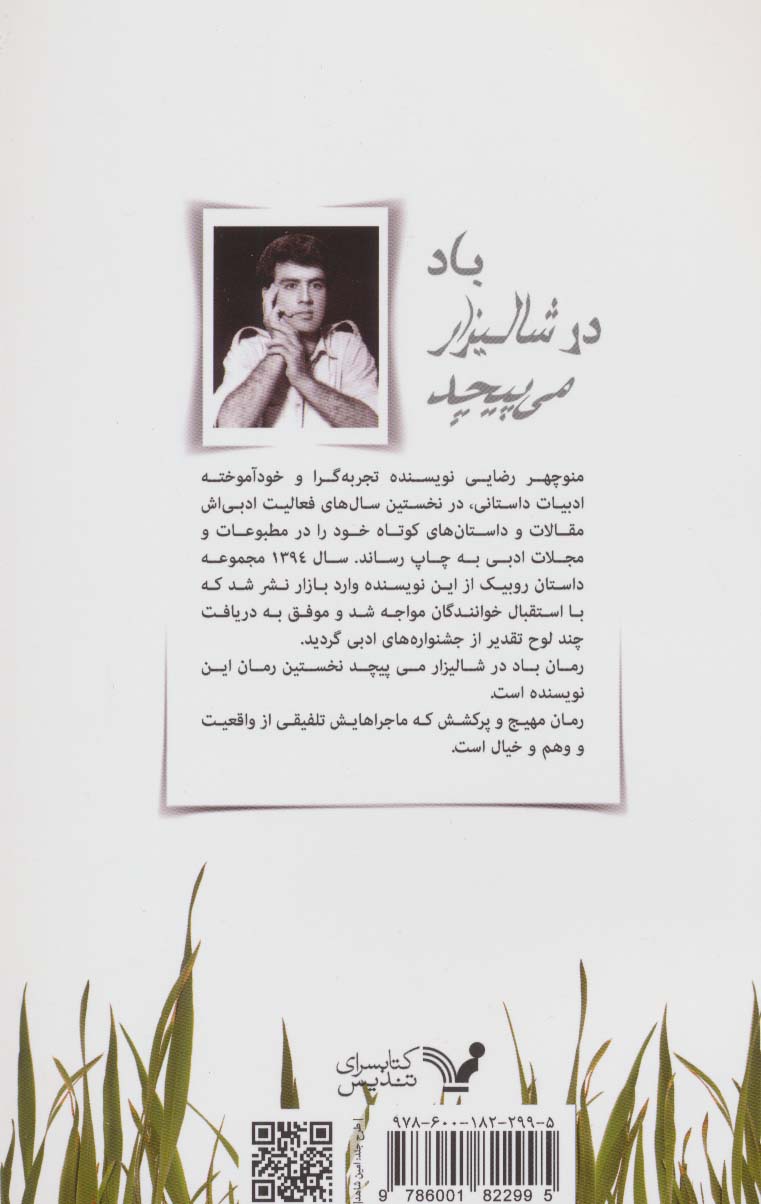 باد
در شالیزار
می‌پیچد
منوچهر رضایی نویسنده تجربه‌گرا و خودآموخته
ادبیات داستانی، در نخستین سال‌های فعالیت ادبی‌اش
مقالات و داستان‌های کوتاه خود را در مطبوعات و
مجلات ادبی به چاپ رساند. سال ۱۳۹۴ مجموعه
داستان روبیک از این نویسنده وارد بازار نشر شد که
با استقبال خوانندگان مواجه شد و موفق به دریافت
چند لوح تقدیر از جشنواره‌های ادبی گردید.
رمان باد در شالیزار می پیچد نخستین رمان این
نویسنده است.
رمان مهیج و پرکشش که ماجراهایش تلفیقی از واقعیت
و وهم و خیال است.
کتابسرای
تندیس
۹۷۸-۶۰۰-۱۸۲-۲۹۹-۵
9 786001 822995
طرح جلد: امین